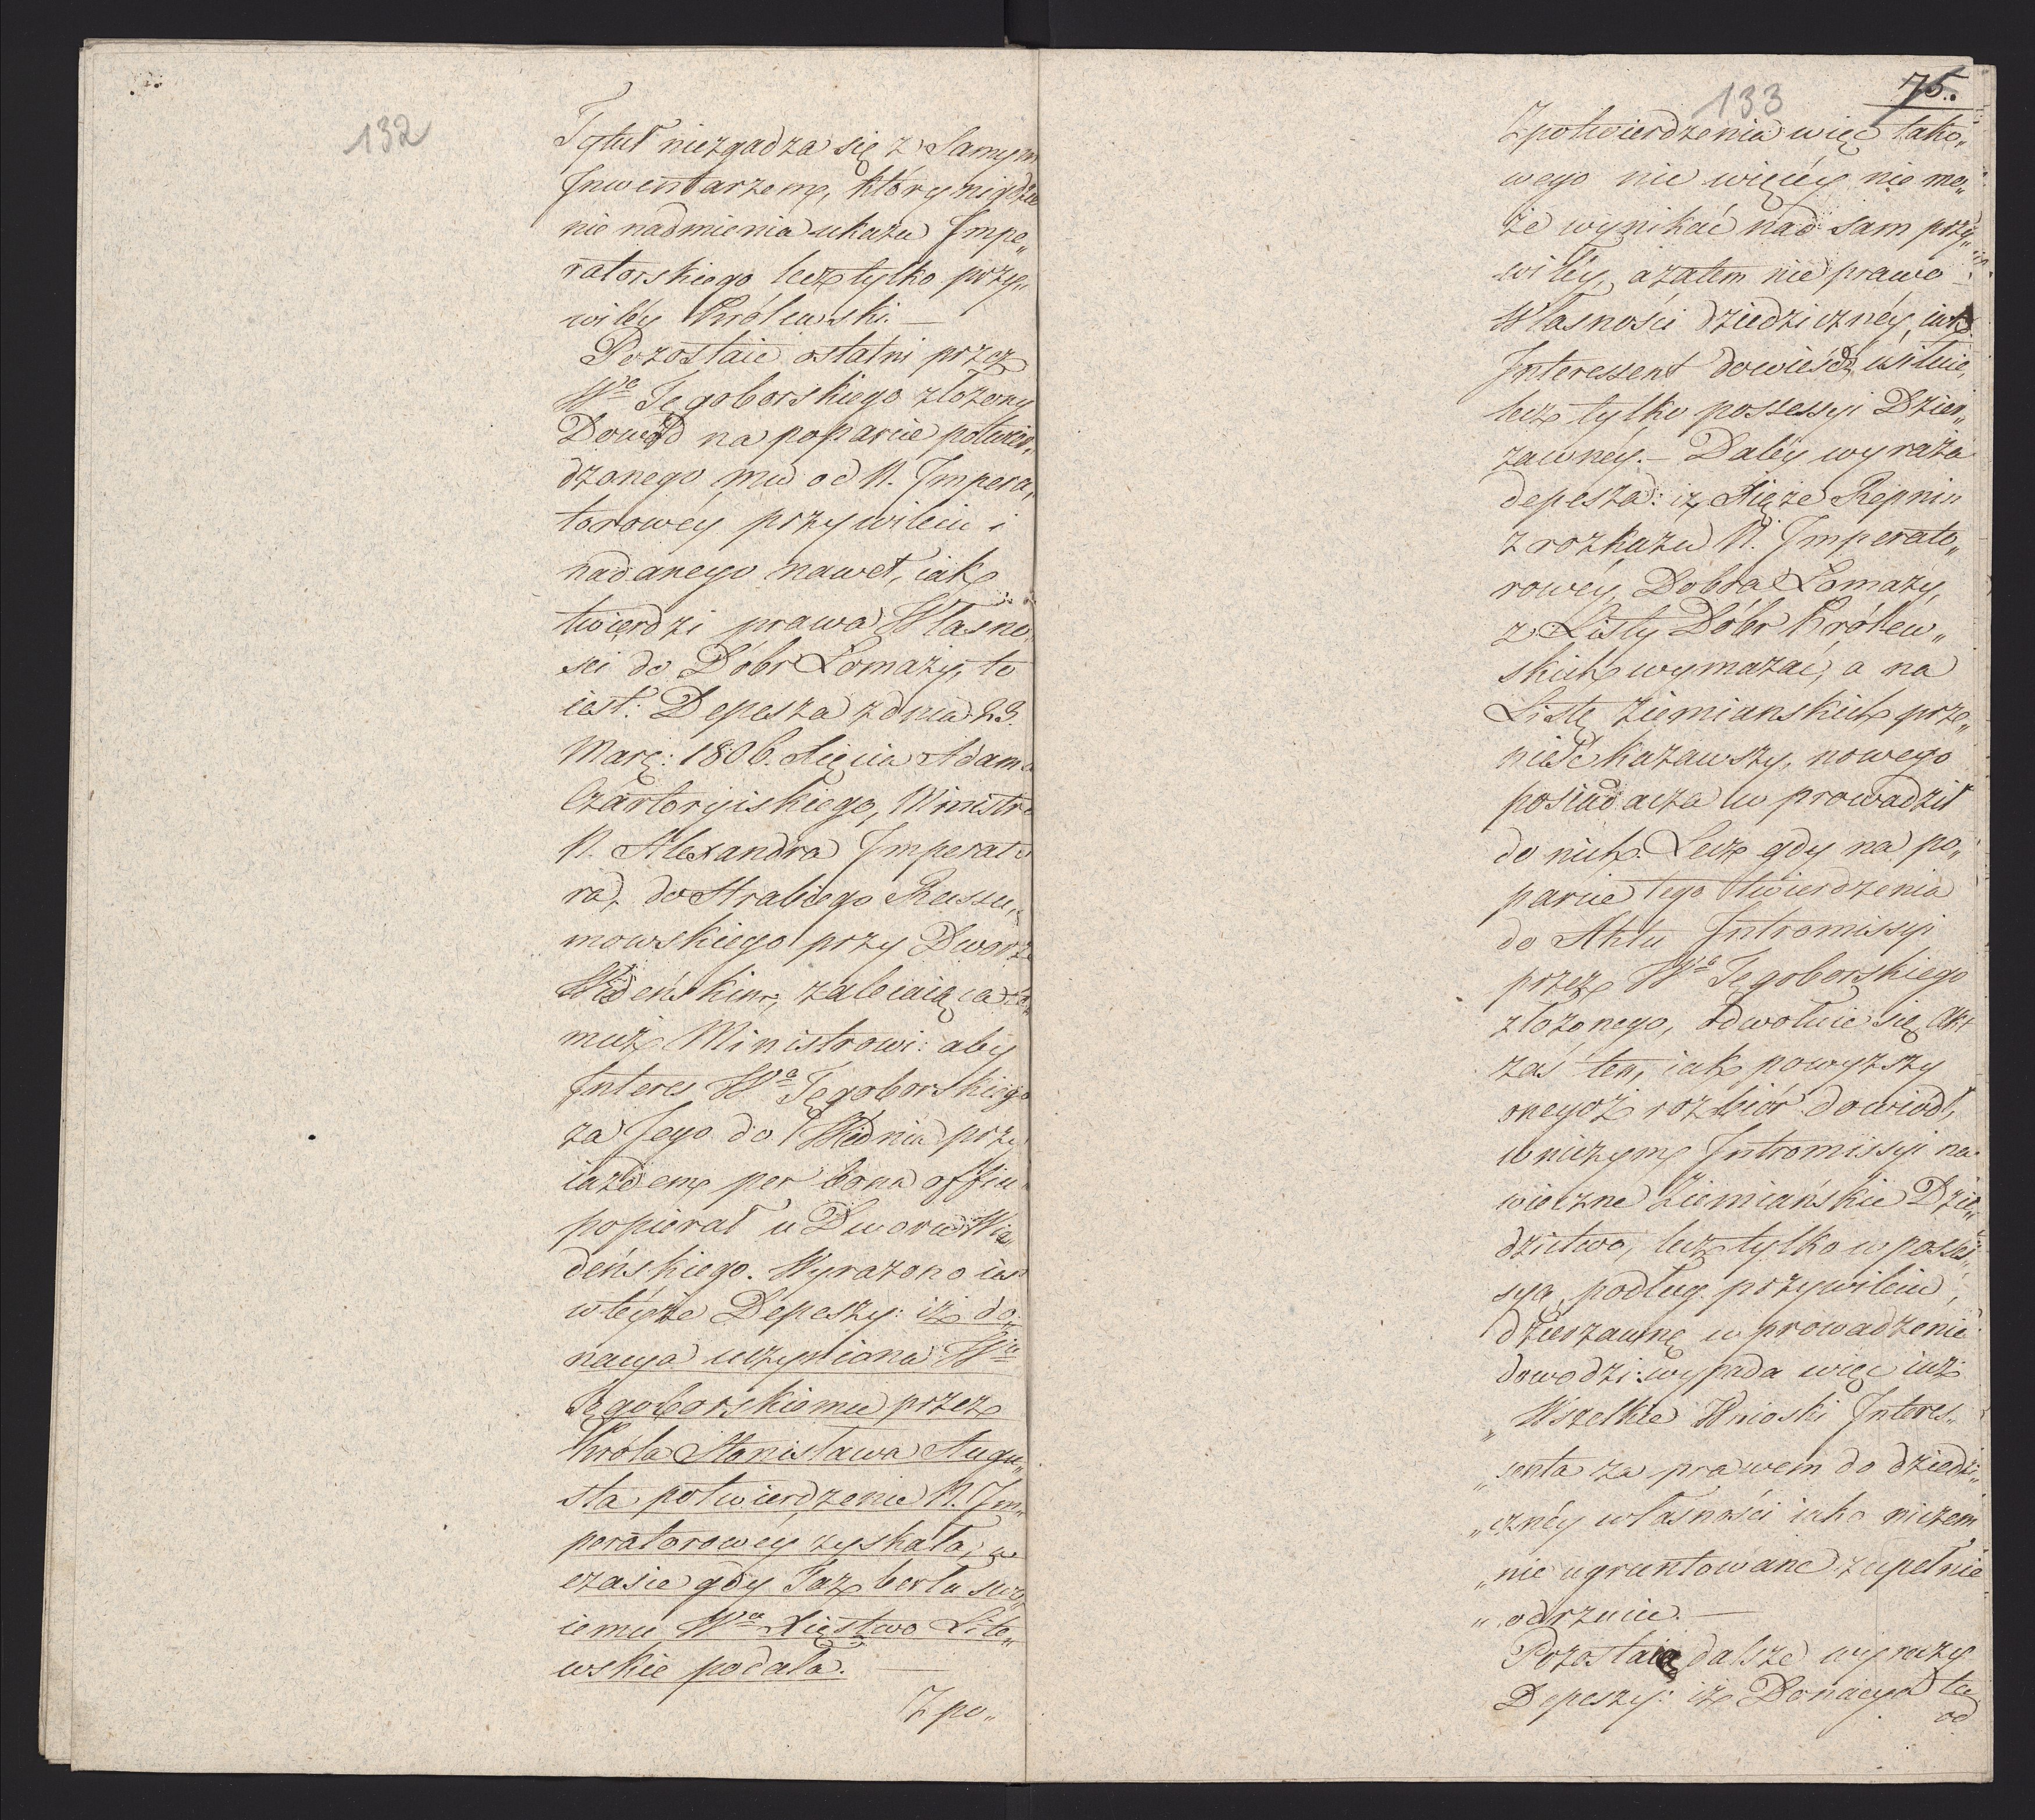 132
Tytuł niezgadza się z Samym
Inwentarzem, który nigdzie
nie nadmienia ukazu Impe„
ratorskiego lecz tylko przy„
wiléy Królewski. —
Pozostaie ostatni przez
Wo Tęgoborskiego złożony
Dowód na poparcie potwier„
dzonego mu od N. Impera„
torowéy przywileiu i
nadanego nawet, iak
twierdzi prawa Własno„
sci do Dóbr Łomazy, to
iest: Depesza z dnia 23.
Marc: 1806. Xięcia Adama
Czartoryiskiego, Ministra
N. Alexandra Imperato
ra, do Hrabiego Rassu„
mowskiego przy Dworze
Wiedeńskim, zalecaiąca te„
muż Ministrowi: aby
Interes Wo Tęgoborskiego
za Jego do Wiednia przy
iazdem per bona officia
popierał u Dworu Wie„
deńskiego. Wyrażono iest
w téyże Depeszy: iż do„
nacya uczyniona Wu
Tęgoborskiemu przez
Króla Stanisława Augu„
sta potwierdzenie N. Im„
peratorowey zyskała, w
czasie gdy Taż berłu swo„
iemu Wo Xięstwo Lite„
wskie podała. —
Z po„
133
75.
Z potwierdzenia więc tako„
wego nic więcéy nie mo„
że wynikać nad sam przy„
wiléy, a zatem nie prawo
Własności dziedzicznéy, iak
Interessent dowieść usiłuie,
lecz tylko possessyi Dzier„
zawnéy. — Daléy wyraża
depesza: iż Xiąże Repnin
z rozkazu N. Imperato„
rowéy Dobra Łomazy,
z Listy Dóbr Królew„
skich wymazać, a na
Listę Ziemianskich prze„
nieść kazawszy, nowego
posiadacza wprowadził
do nich. Lecz gdy na po„
parcie tego twierdzenia
do Aktu Intromissyi
przez Wo Tęgoborskiego
złożonego, odwołuie się Akt
zaś ten, iak powyższy
onegoż rozbiór dowiódł,
w niczym Intromissyi na
wieczne Ziemiańskie Dzie„
dzictwo, lecz tylko w posses„
syą podług przywileiu,
dzierzawną wprowadzenie
dowodzi: wypada więc iuż
„Wszelkie Wnioski Interes„
„senta za prawem do dziedzi„
„cznéy własności iako niczem
„nie ugruntowane zupełnie
„odrzucic. —
Pozostaią dalsze wyrazy
Depeszy: iż Donacya ta
od